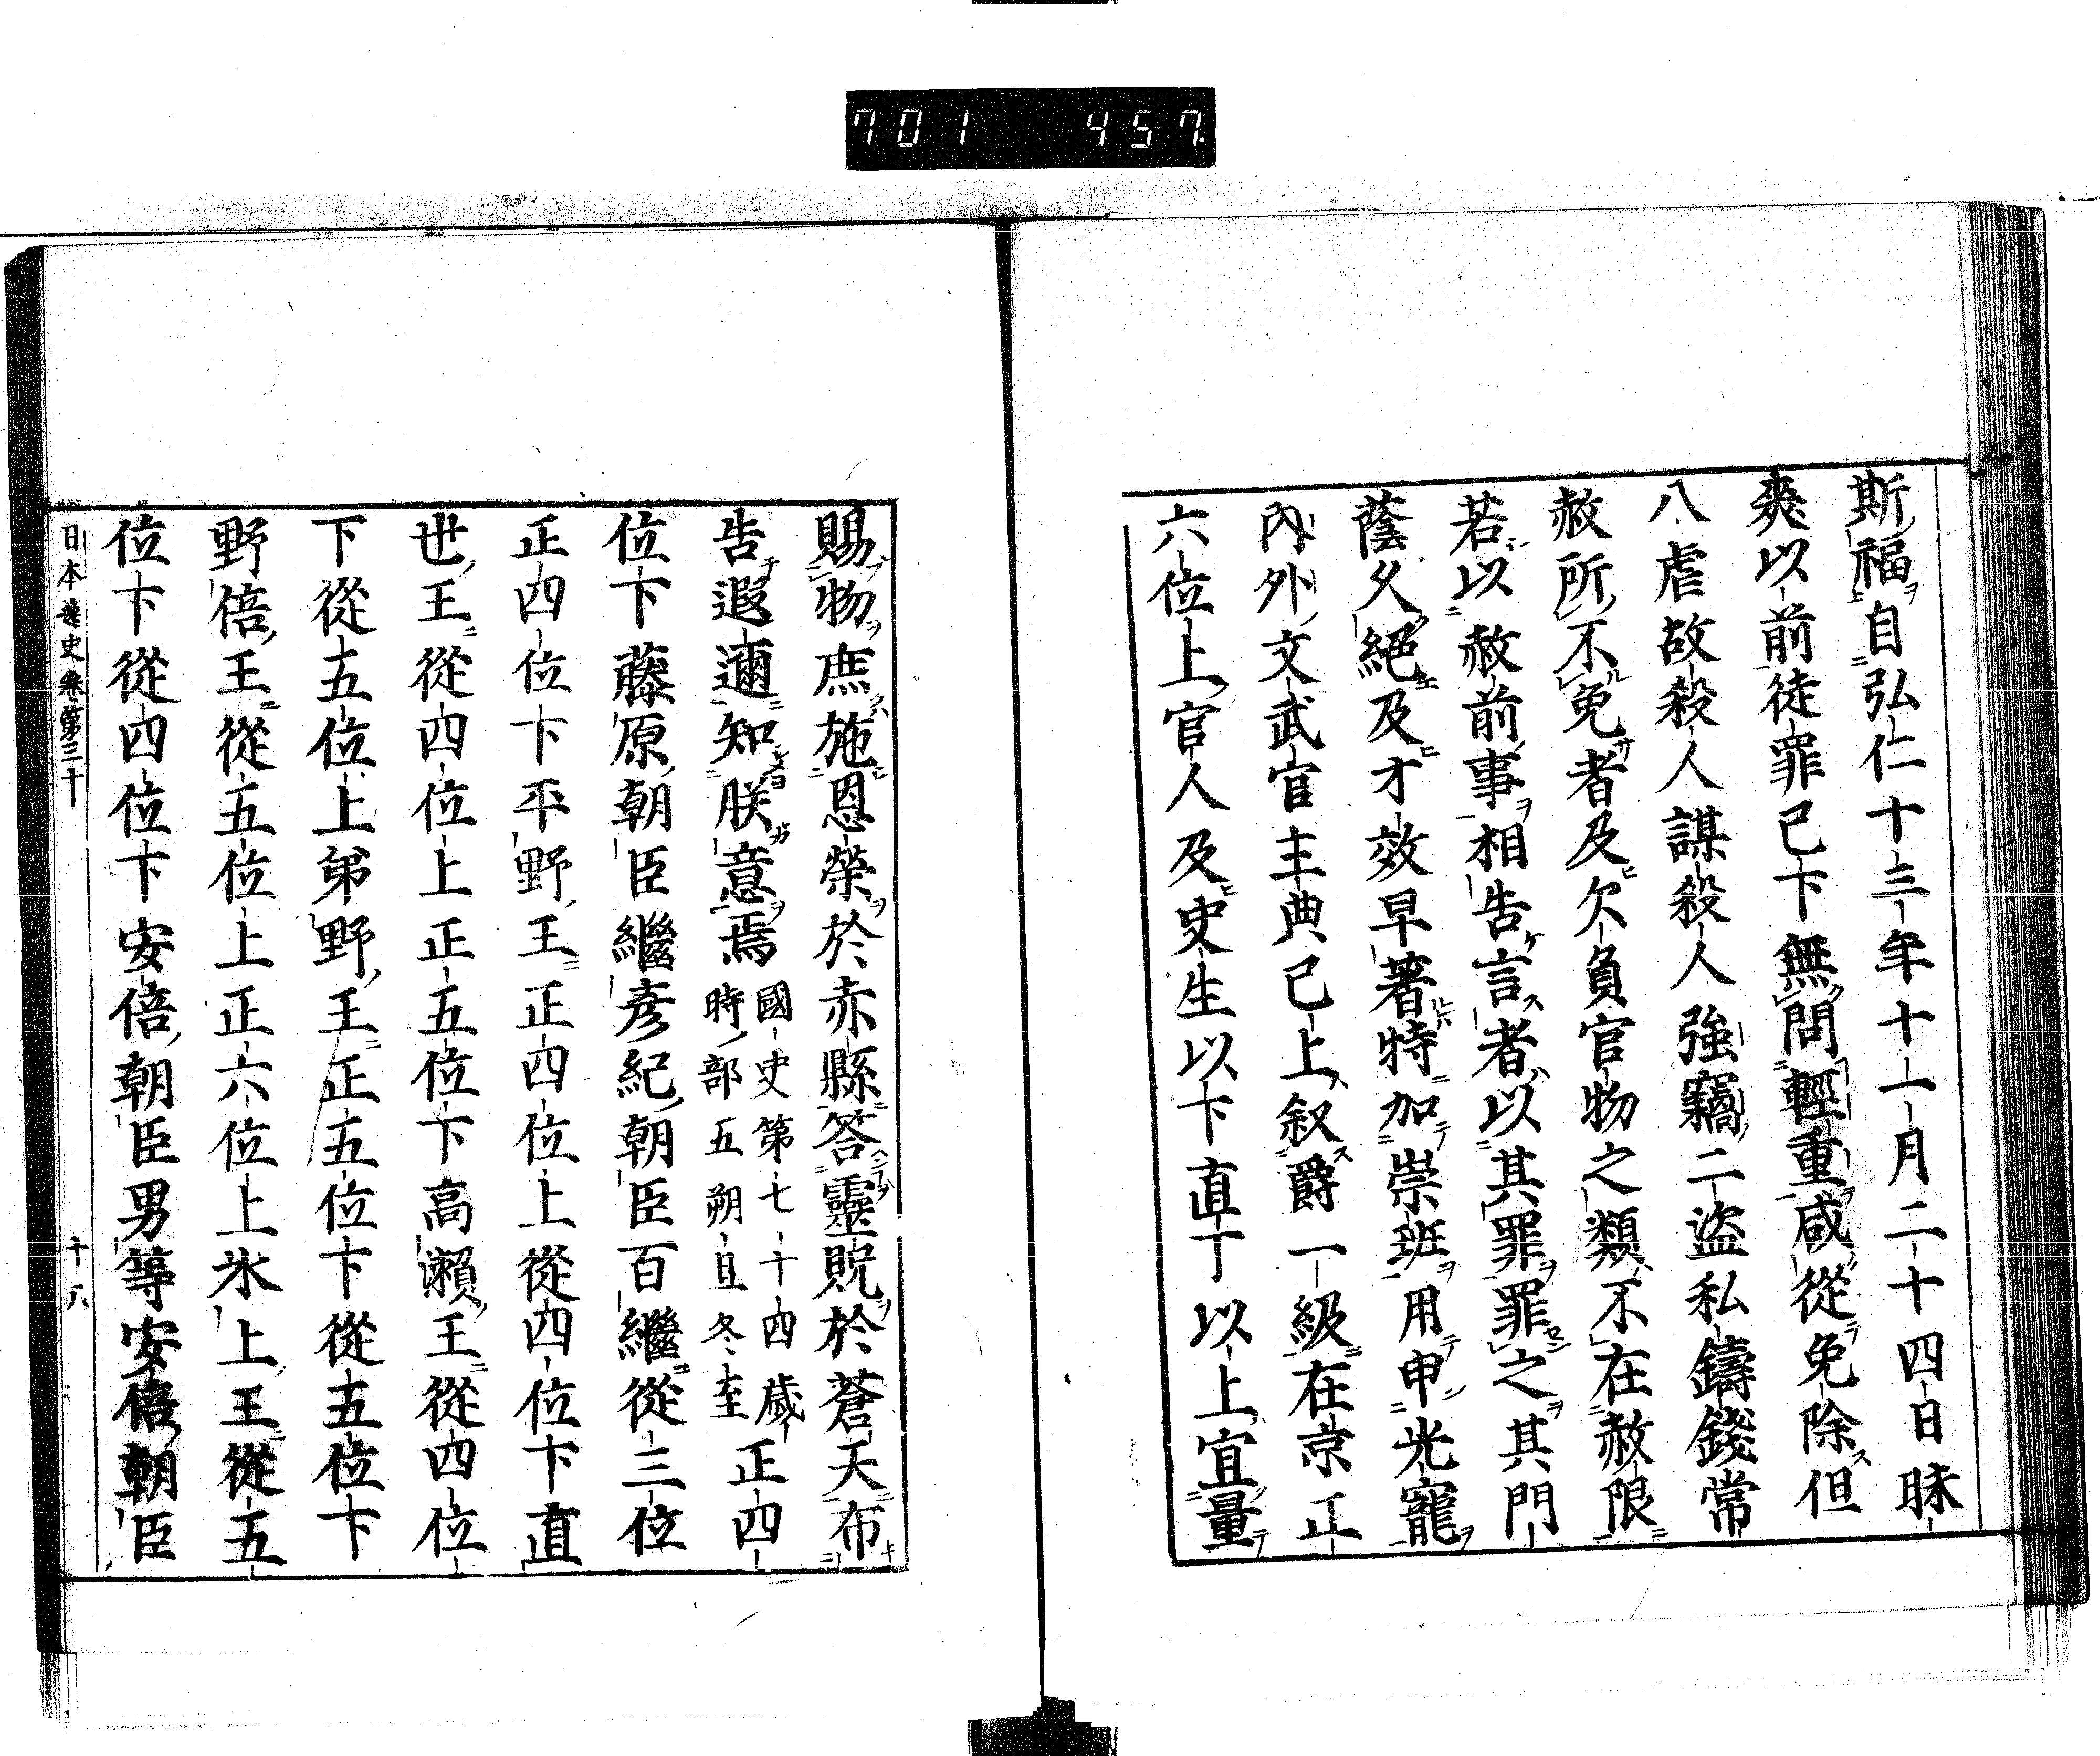 701 457
斯福自弘仁十三年十一月二十四日昧
爽以前徒罪已下無問輕重咸從免除但
八虐故殺人謀殺人強竊二盜私鑄錢常
赦所不免者及欠負官物之類不在赦限
若以赦前事相告言者以其罪罪之其門
蔭久絕及才效早著特加崇班用申光寵
內外文武官主典已上叙爵一級在京正
六位上官人及史生以下直丁以上宜量
賜物庶施恩榮於赤縣答靈貺於蒼天布
告遐邇知朕意焉國史第七十四歲時部五朔旦冬至正四
位下藤原朝臣繼彥紀朝臣百繼從三位
正四位下平野王正四位上從四位下直
世王從四位上正五位下高瀨王從四位
下從五位上弟野王正五位下從五位下
野倍王從五位上正六位上氷上王從五
位下從四位下安倍朝臣男等安倍朝臣
日本逸史卷第三十 十八